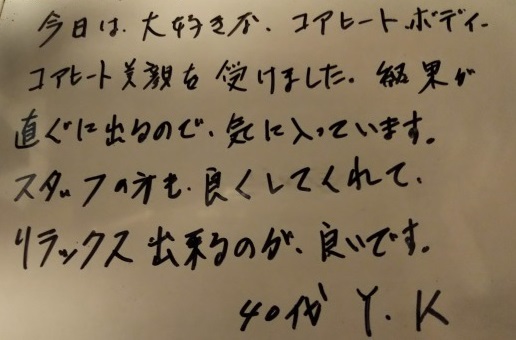 今日は、大好きな、コアヒートボディ
コアヒート美顔を受けました。結果が
直ぐに出るので、気に入っています。
スタッフの方も、良くしてくれて、
リラックス出来るのが、良いです。
40代 Y.K